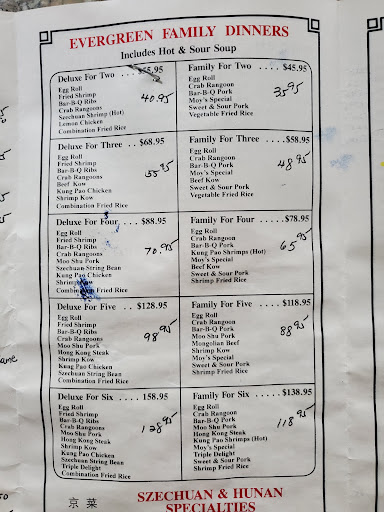 EVERGREEN FAMILY DINNERS
Includes Hot & Sour Soup
Deluxe For Two .... $55.95
Egg Roll
Fried Shrimp
Bar-B-Q Ribs
Crab Rangoons
Szechuan Shrimp (Hot)
Lemon Chicken
Combination Fried Rice
40.95
Family For Two .... $45.95
Egg Roll
Crab Rangoon
Bar-B-Q Pork
Moy's Special
Sweet & Sour Pork
Vegetable Fried Rice
35.95
Deluxe For Three .. $68.95
Egg Roll
Fried Shrimp
Bar-B-Q Ribs
Crab Rangoons
Beef Kow
Kung Pao Chicken
Shrimp Kow
Combination Fried Rice
55.95
Family For Three .... $58.95
Egg Roll
Crab Rangoon
Bar-B-Q Pork
Moy's Special
Beef Kow
Sweet & Sour Pork
Vegetable Fried Rice
48.95
Deluxe For Four .. $88.95
Egg Roll
Fried Shrimp
Bar-B-Q Ribs
Crab Rangoons
Moo Shu Pork
Szechuan String Bean
Kung Pao Chicken
Shrimp
Combination Fried Rice
70.95
Family For Four .....$78.95
Egg Roll
Crab Rangoon
Bar-B-Q Pork
Kung Pao Shrimps (Hot)
Moy's Special
Beef Kow
Sweet & Sour Pork
Shrimp Fried Rice
65.95
Deluxe For Five .. $128.95
Egg Roll
Fried Shrimp
Bar-B-Q Ribs
Crab Rangoons
Moo Shu Pork
Hong Kong Steak
Shrimp Kow
Kung Pao Chicken
Szechuan String Bean
Combination Fried Rice
98.95
Family For Five .... $118.95
Egg Roll
Crab Rangoon
Bar-B-Q Pork
Moo Shu Pork
Mongolian Beef
Shrimp Kow
Moy's Special
Sweet & Sour Pork
Shrimp Fried Rice
88.95
Deluxe For Six .... 158.95
Egg Roll
Fried Shrimp
Bar-B-Q Ribs
Crab Rangoons
Moo Shu Pork
Hong Kong Steak
Shrimp Kow
Kung Pao Chicken
Szechuan String Bean
Triple Delight
Combination Fried Rice
128.95
Family For Six ..... $138.95
Egg Roll
Crab Rangoon
Bar-B-Q Pork
Moo Shu Pork
Hong Kong Steak
Kung Pao Shrimps (Hot)
Moy's Special
Triple Delight
Sweet & Sour Pork
Shrimp Fried Rice
118.95
京菜
SZECHUAN & HUNAN
SPECIALTIES